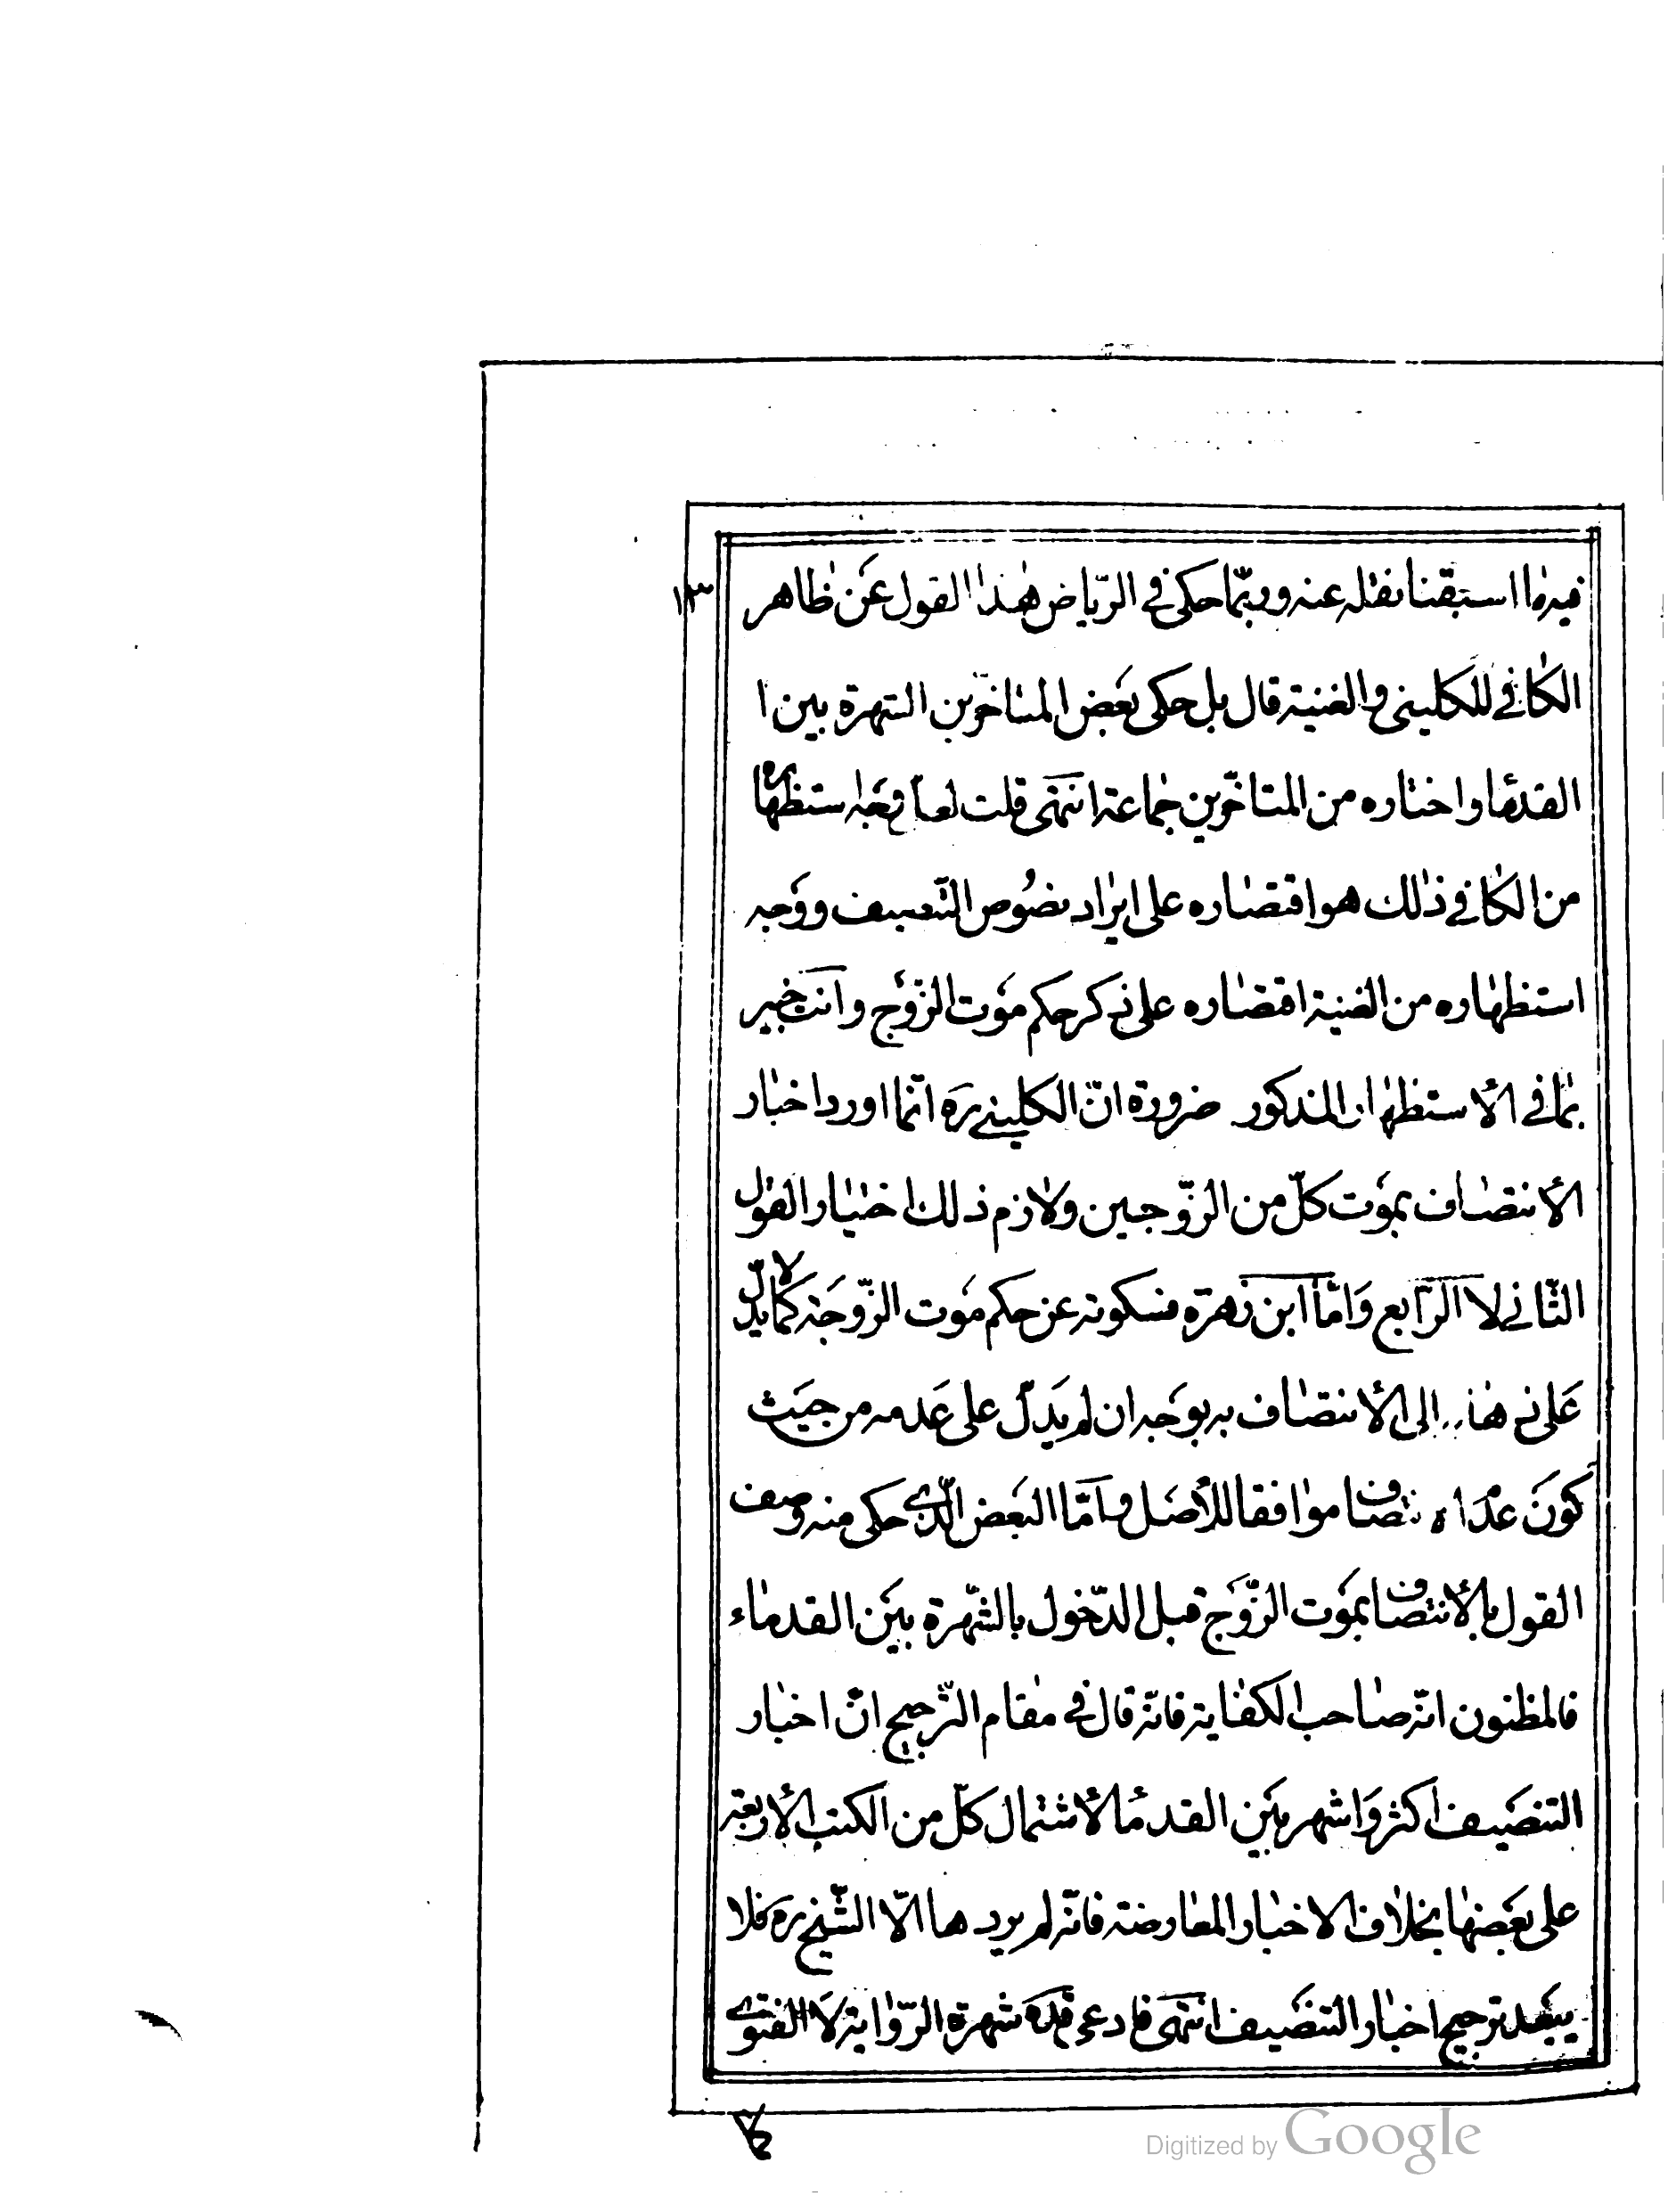 فيه ما استبقنا نقله عنه وربّما حكى في الرّياض هذا القول عن ظاهر
١٣
الكافي للكليني والغنية قال بل حكى بعض المتاخّرين الشهرة بين ا
القدما واختاره من المتاخّرين جماعة انتهى قلت لعل وجه استظهاره
من الكافي ذلك هو اقتصاره على ايراد نصوص التنصيف ووجه
استظهاره من الغنية اقتصاره على ذكر حكم موت الزّوج وانت خبير
بما في الأستظهار المذكور ضرورة انّ الكليني ره انّما اورد اخبار
الأنتصاف بموت كلّ من الزّوجين ولازم ذلك اختيار القول
الثّاني لا الرّابع وامّا ابن زهرة فسكوته عن حكم موت الزّوجة كما لا يدلّ
على ذهابه الى الأنتصاف به بوجه ان لم يدلّ على عدمه من حيث
كون عدم انتصاف موافقا للأصل وامّا البعض الّذي حكى منه وصف
القول بالأنتصاف بموت الزّوج قبل الدّخول بالشّهرة بين القدماء
فالمظنون انّه صاحب الكفاية فانّه قال في مقام التّرجيح انّ اخبار
التنصيف اكثر واشهر بين القدما لأشتمال كلّ من الكتب الأربعة
على بعضها بخلاف الاخبار المعارضة فانّه لم يردها الّا الشّيخ ره فلا
يبعد ترجيح اخبار التنصيف انتهى فادعى قده شهرة الرّواية لا الفتوى
Digitized by Google